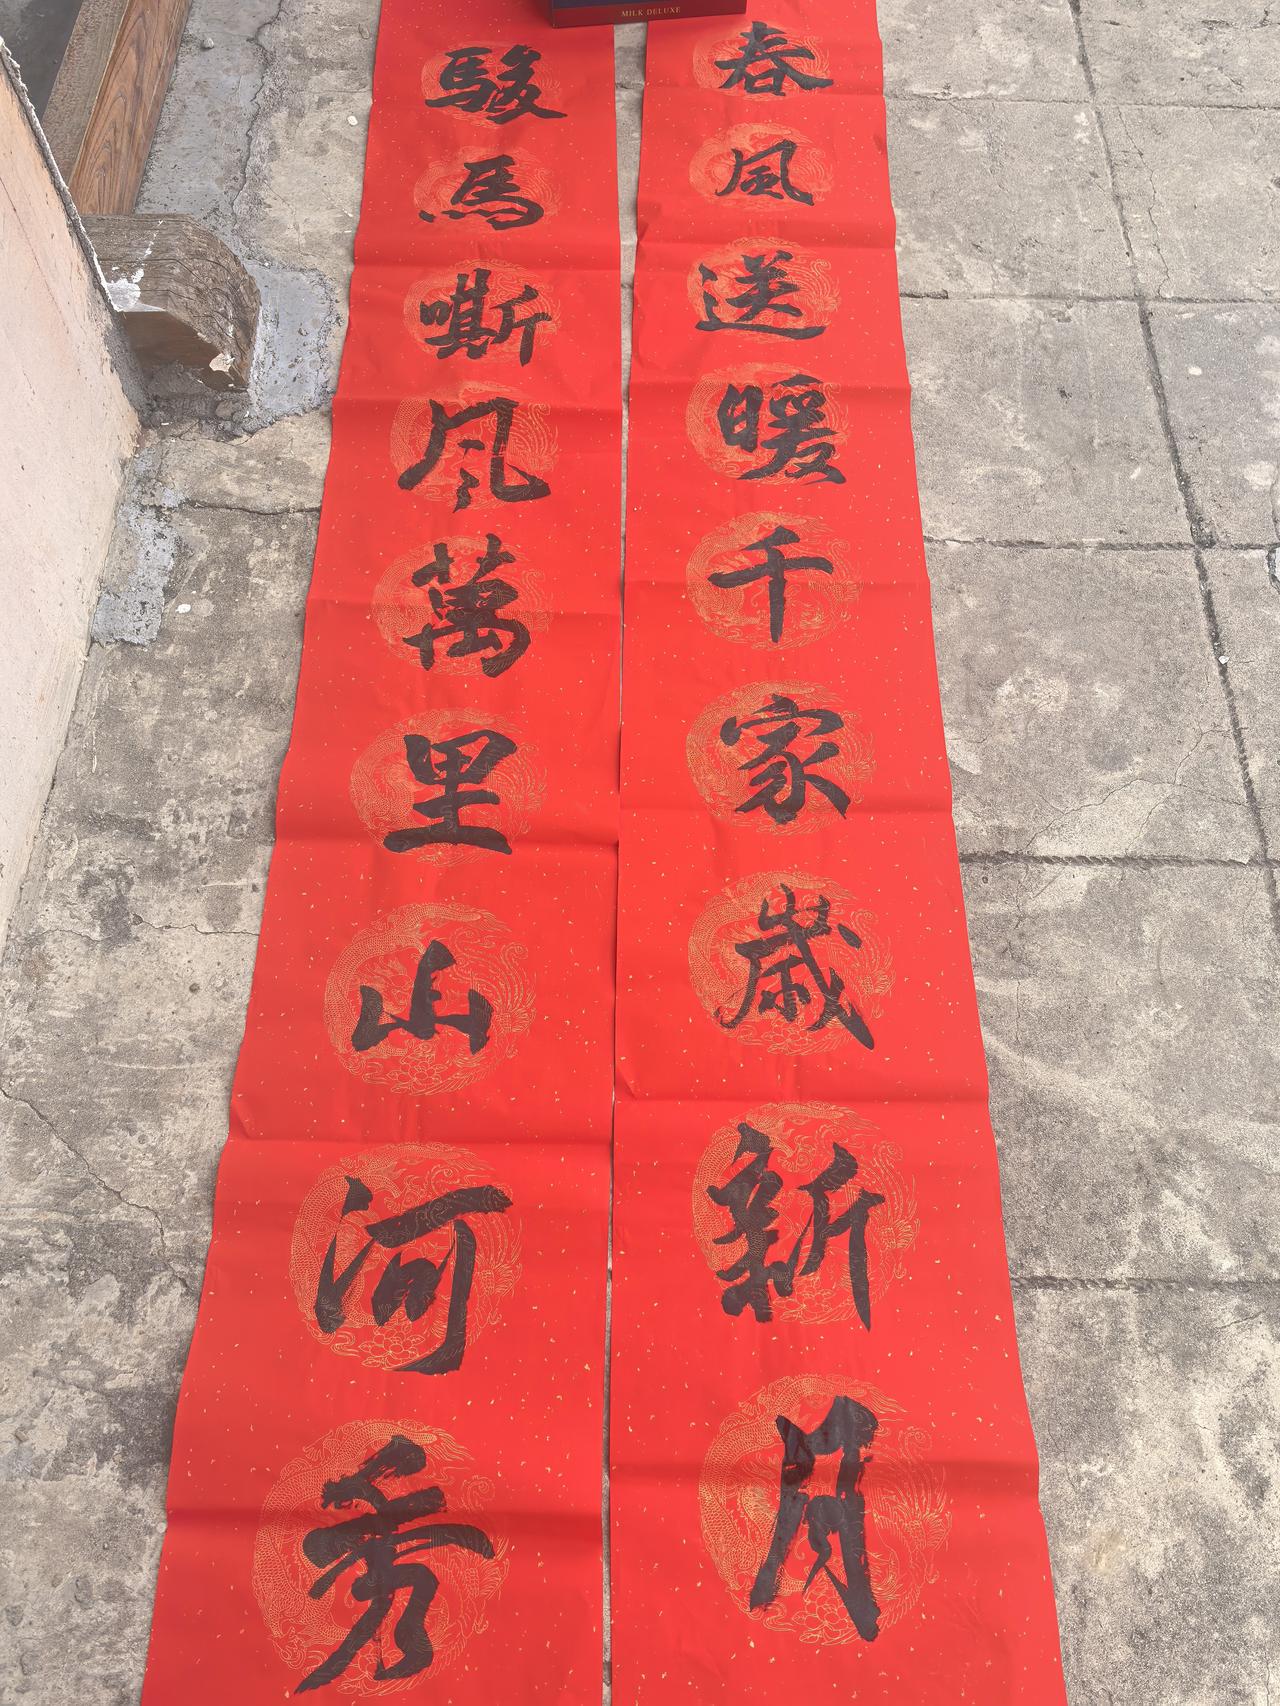 春風送暖千家歲新月
駿馬嘶风萬里山河秀
MILK DELUXE